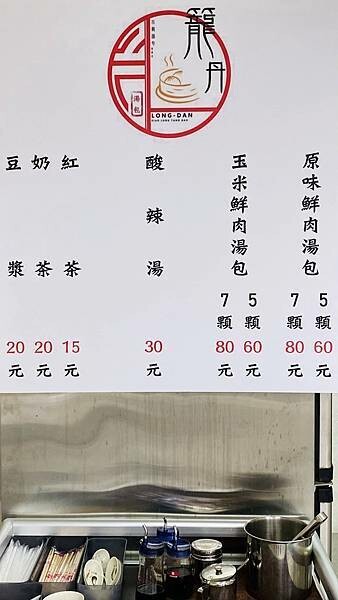 籠丹
湯包
LONG-DAN
XIAO LONG TANG BAO
原味鮮肉湯包
5顆 60元
7顆 80元
玉米鮮肉湯包
5顆 60元
7顆 80元
酸辣湯
30元
紅茶
15元
奶茶
20元
豆漿
20元